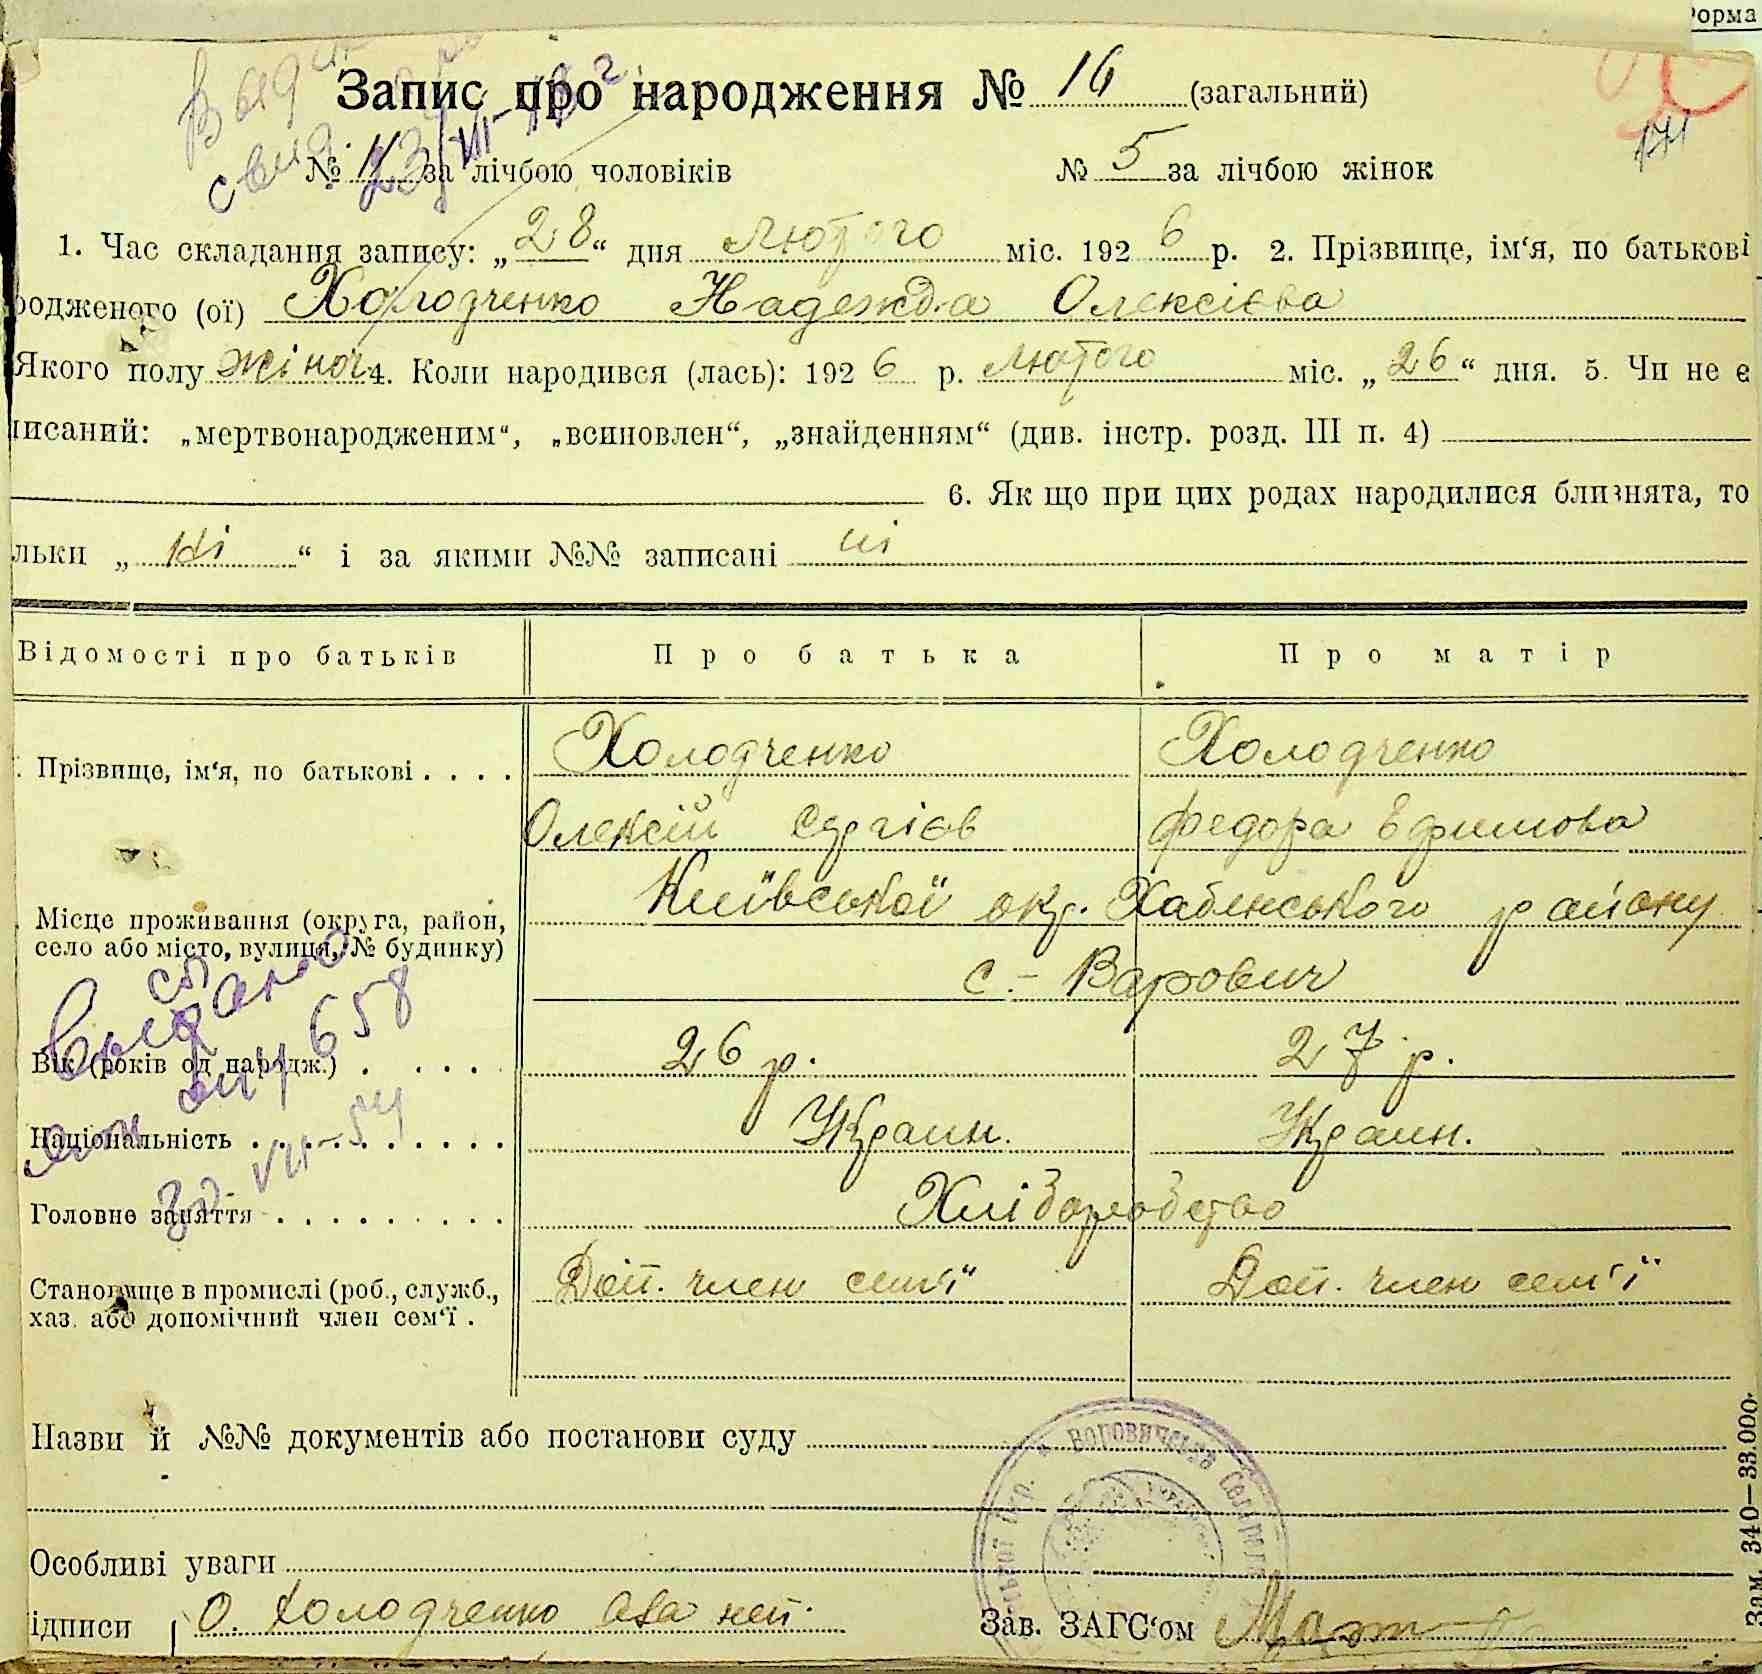 Форма
Запис про народження № 16 (загальний)
№ 11 за лічбою чоловіків № 5 за лічбою жінок
171
1. Час складання запису: „28“ дня Лютого міс. 1926 р. 2. Прізвище, ім‘я, по батькові
родженого (ої) Холодченко Надежда Олексієва
Якого полу жіноч 4. Коли народився (лась): 1926 р. Лютого міс. „26“ дня. 5. Чи не є
писаний: „мертвонародженим“, „всиновлен“, „знайденням“ (див. інстр. розд. III п. 4)
6. Як що при цих родах народилися близнята, то
льки „ ні “ і за якими №№ записані ні
Відомості про батьків Про батька Про матір
Прізвище, ім‘я, по батькові . . . . Холодченко Холодченко
Олексій Сергієв Федора Ефимова
Місце проживання (округа, район, село або місто, вулиця, № будинку) Київської окр. Хабенського району
с.- Варович
Вік (років од народж.) . . . . . 26 р. 27 р.
Національність . . . . . . . . . . Украин. Украин.
Головне заняття . . . . . . . . . Хліборобство
Становище в промислі (роб., служб., Доп. член сем‘ї Доп. член сем‘ї
хаз. або допомічний член сем‘ї .
Выдано
св
658
30. VII-54
Назви й №№ документів або постанови суду
Особливі уваги
ідписи О. Холодченко Зав. ЗАГС‘ом
Зам. 340—33.000.